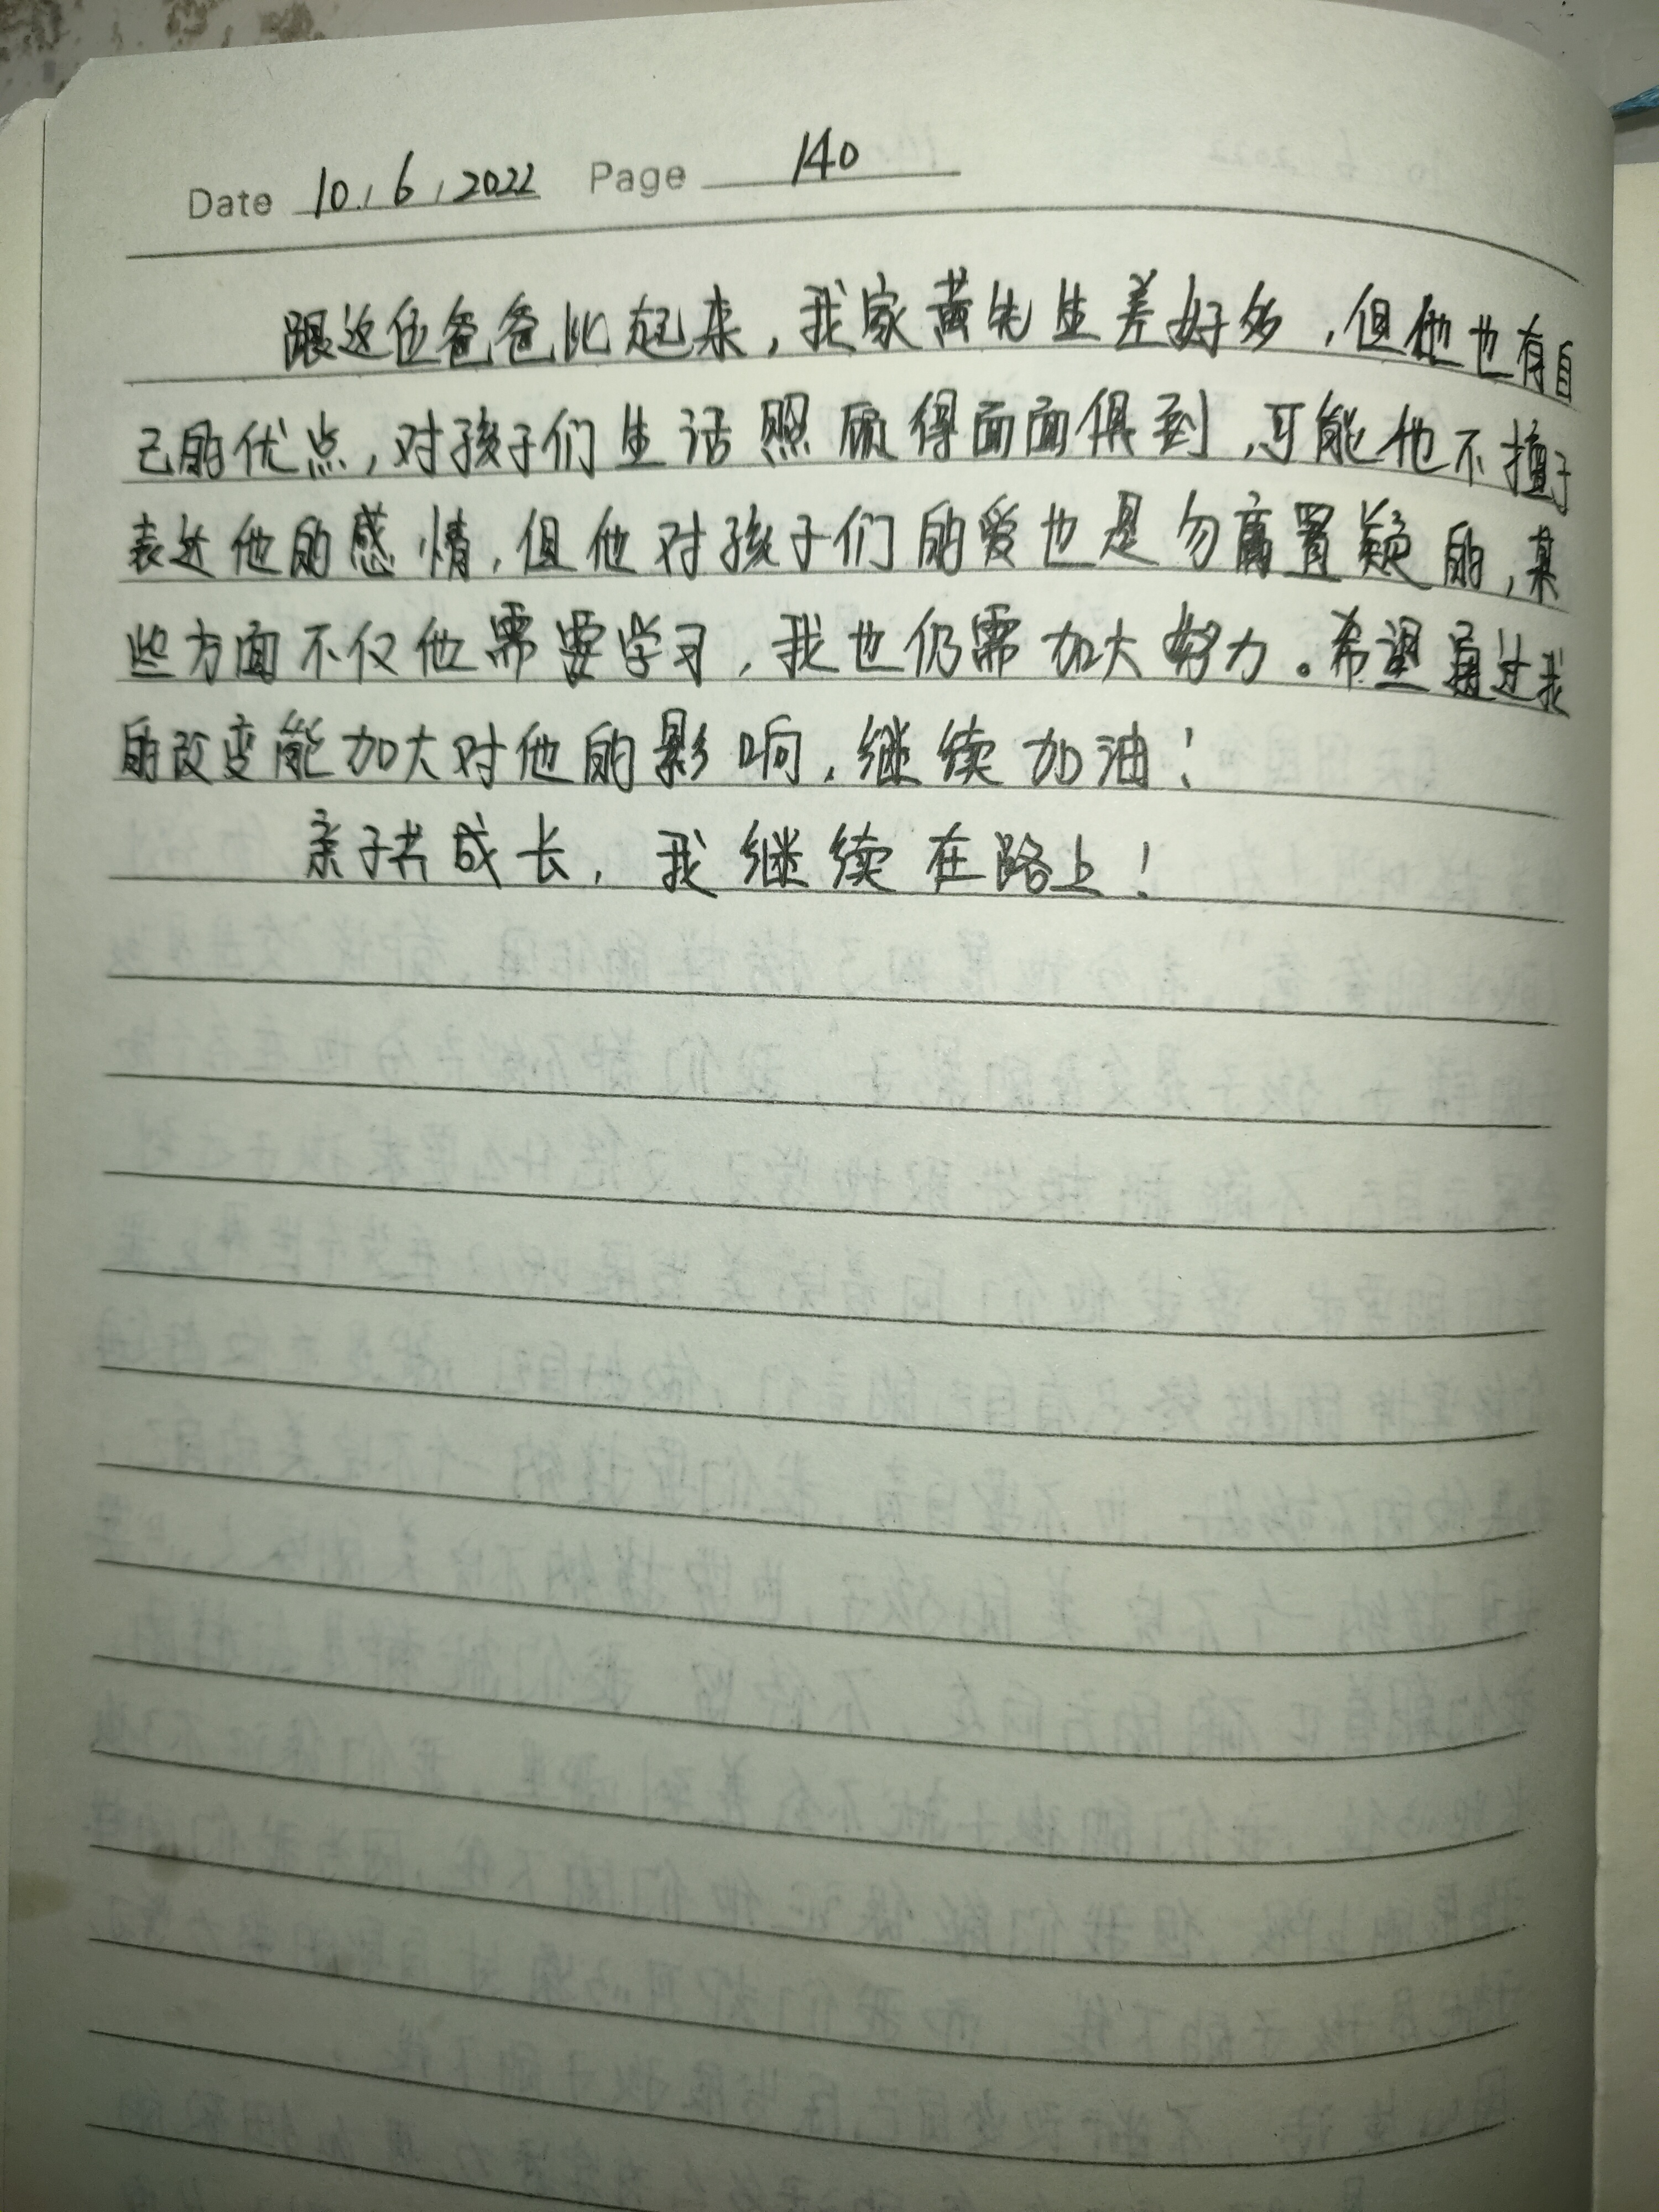 Date 10.6.2022 Page 140
跟这位爸爸比起来，我家黄先生差好多，但他也有自
己的优点，对孩子们生活照顾得面面俱到，可能他不擅于
表达他的感情，但他对孩子们的爱也是勿庸置疑的，某
些方面不仅他需要学习，我也仍需加大努力。希望通过我
的改变能加大对他的影响，继续加油！
亲子共成长，我继续在路上！